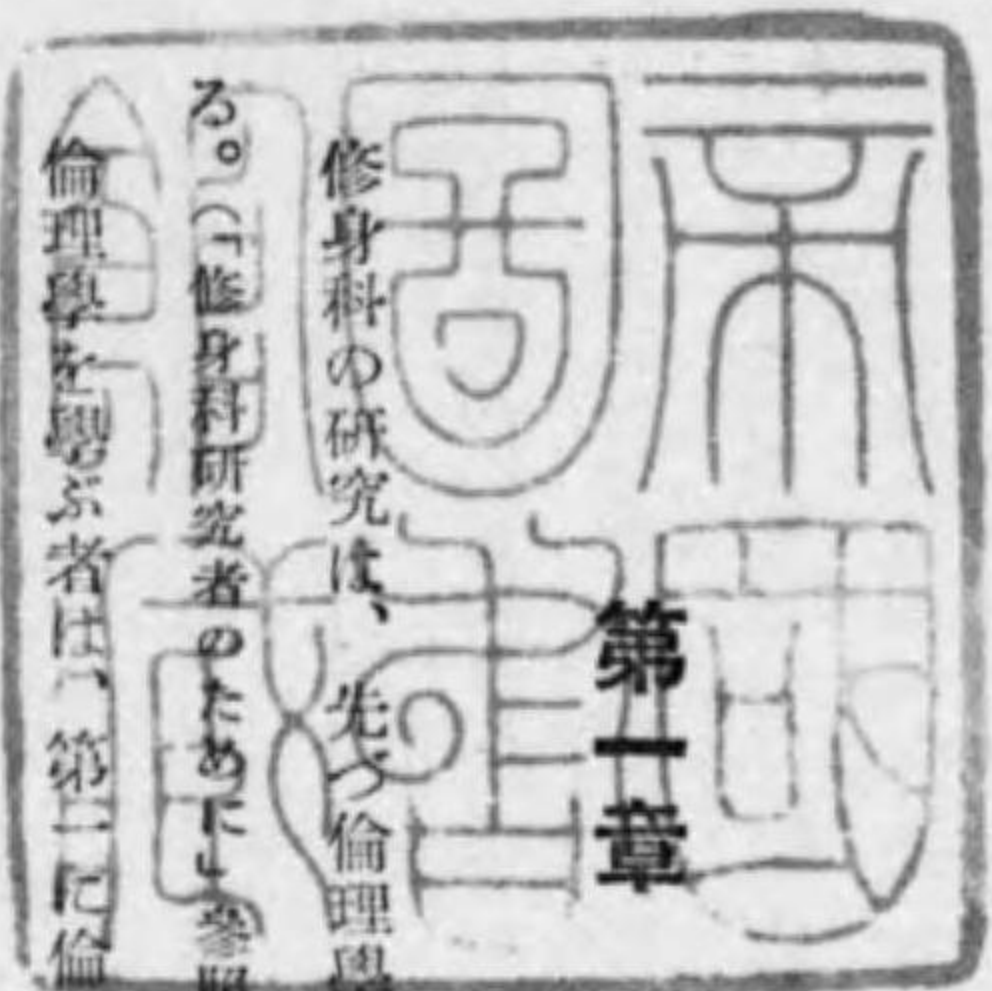 第一章
修身科の研究は、先づ倫理學
る。(「修身科研究者のために」參照
倫理學を學ぶ者は、第一に倫